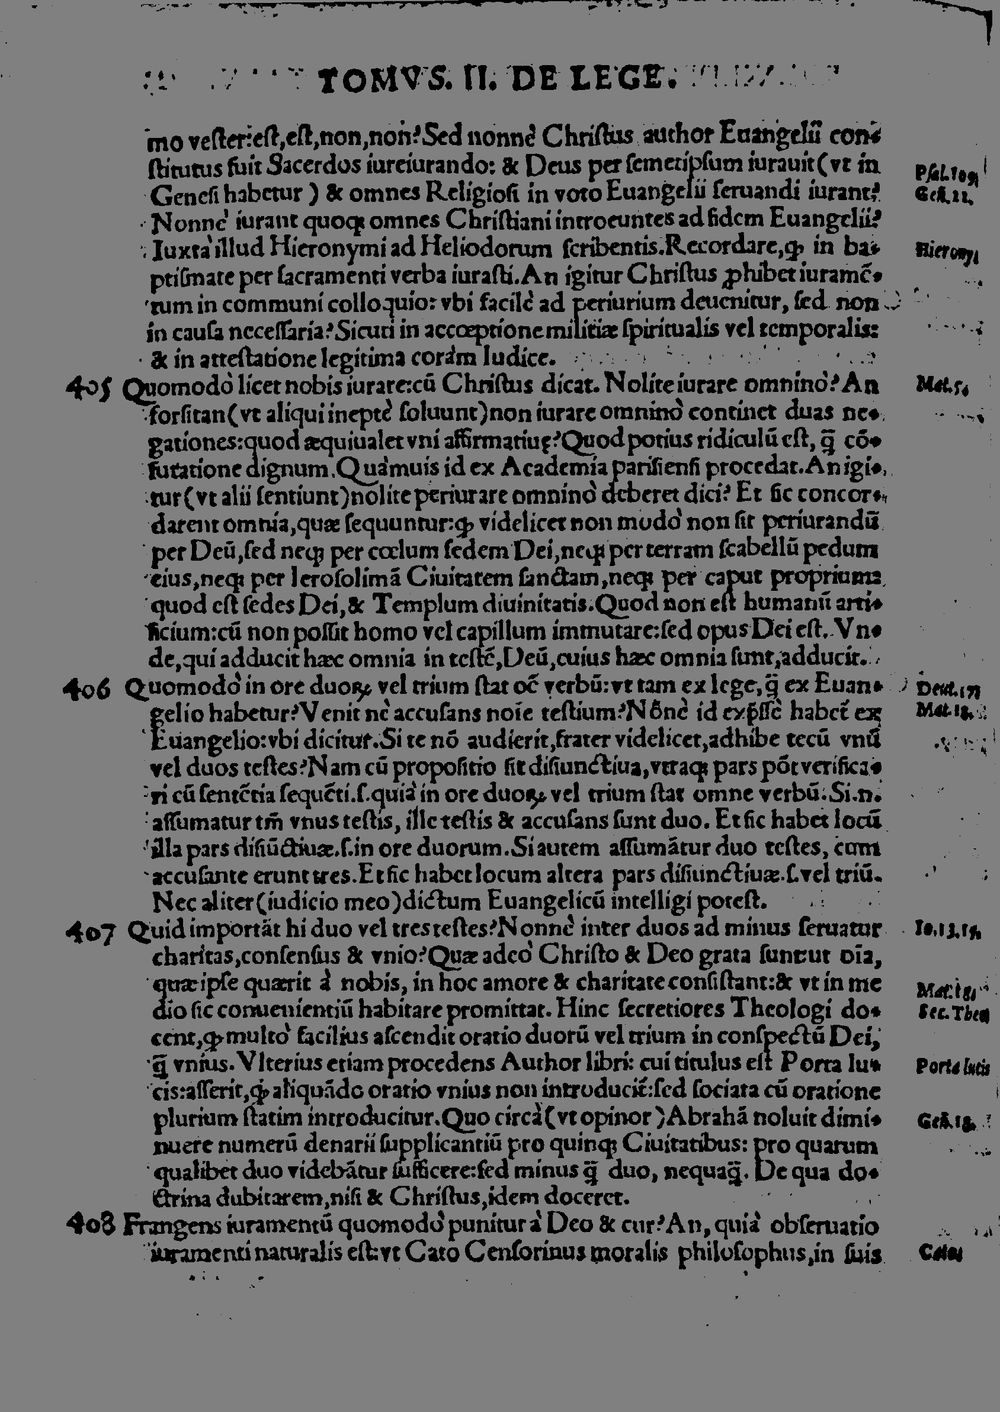 TOMVS. II. DE LEGE.
mo vester:est,est,non,non?Sed nonnè Christus author Euangelii con-
stitutus fuit Sacerdos iureiurando: & Deus per semetipsum iurauit(vt in
Psal.109
Genesi habetur ) & omnes Religiosi in voto Euangelii seruandi iurant?
Geñ.22.
Nonnè iurant quoqꝫ omnes Christiani introeuntes ad fidem Euangelii?
Iuxta illud Hieronymi ad Heliodorum scribentis.Recordare,ꝙ in ba-
Hierony
ptismate per sacramenti verba iurasti.An igitur Christus ꝓhibet iuramẽ-
tum in communi colloquio: vbi facilè ad periurium deuenitur, sed non
in causa necessaria?Sicuti in accœptione militiæ spiritualis vel temporalis:
& in attestatione legitima coràm Iudice.
405 Quomodò licet nobis iurare:cũ Christus dicat. Nolite iurare omninò?An
Mat.5.
forsitan(vt aliqui ineptè soluunt)non iurare omninò continet duas ne-
gationes:quod æquiualet vni affirmatiuę?Quod potius ridiculũ est, q̃ cõ-
futatione dignum.Quàmuis id ex Academia parisiensi procedat.An igi-
tur(vt alii sentiunt)nolite periurare omninò deberet dici? Et sic concor-
darent omnia,quæ sequuntur:ꝙ videlicet non modò non sit periurandũ
per Deũ,sed neqꝫ per cœlum sedem Dei,neqꝫ per terram scabellũ pedum
eius,neqꝫ per Ierosolimã Ciuitatem sanctam,neqꝫ per caput proprium:
quod est sedes Dei,& Templum diuinitatis.Quod non est humanũ arti-
ficium:cũ non possit homo vel capillum immutare:sed opus Dei est. Vn-
de,qui adducit hæc omnia in testẽ,Deũ,cuius hæc omnia sunt,adducit.
406 Quomodò in ore duoꝝ vel trium stat oẽ verbũ:vt tam ex lege,q̃ ex Euan-
Deut.17
gelio habetur?Venit nè accusans noĩe testium?Nõnè id exp̃ssè habet ex
Mat.18.
Euangelio:vbi dicitur.Si te nõ audierit,frater videlicet,adhibe tecũ vnũ
vel duos testes?Nam cũ propositio sit disiunctiua,vtraqꝫ pars põt verifica-
ri cũ sentẽtia sequẽti.s.quia in ore duoꝝ vel trium stat omne verbũ.Si.n.
assumatur tm̃ vnus testis, ille testis & accusans sunt duo. Et sic habet locũ
illa pars disiũctiuæ.s.in ore duorum.Si autem assumãtur duo testes, cum
accusante erunt tres.Et sic habet locum altera pars disiunctiuæ.s.vel triũ.
Nec aliter(iudicio meo)dictum Euangelicũ intelligi potest.
407 Quid importãt hi duo vel tres testes?Nonnè inter duos ad minus seruatur
Io.13.15.
charitas,consensus & vnio?Quæ adeò Christo & Deo grata sunt:ut oĩa,
quæ ipse quærit à nobis, in hoc amore & charitate consistant:& vt in me
Mat.18.
dio sic conuenientiũ habitare promittat. Hinc secretiores Theologi do-
Sec.Theol
cent,ꝙ multò facilius ascendit oratio duorũ vel trium in conspectũ Dei,
q̃ vnius. Vlterius etiam procedens Author libri: cui titulus est Porta lu-
Porta lucis
cis:asserit,ꝙ aliquãdo oratio vnius non introducit:sed sociata cũ oratione
plurium statim introducitur.Quo circà(vt opinor)Abrahã noluit dimi-
Geñ.18.
nuere numerũ denarii supplicantiũ pro quinqꝫ Ciuitatibus: pro quarum
qualibet duo videbãtur sufficere:sed minus q̃ duo, nequaq̃. De qua do-
ctrina dubitarem,nisi & Christus,idem doceret.
408 Frangens iuramentũ quomodò punitur à Deo & cur?An, quià obseruatio
iuramenti naturalis est:vt Cato Censorinus moralis philosophus,in suis
Cato